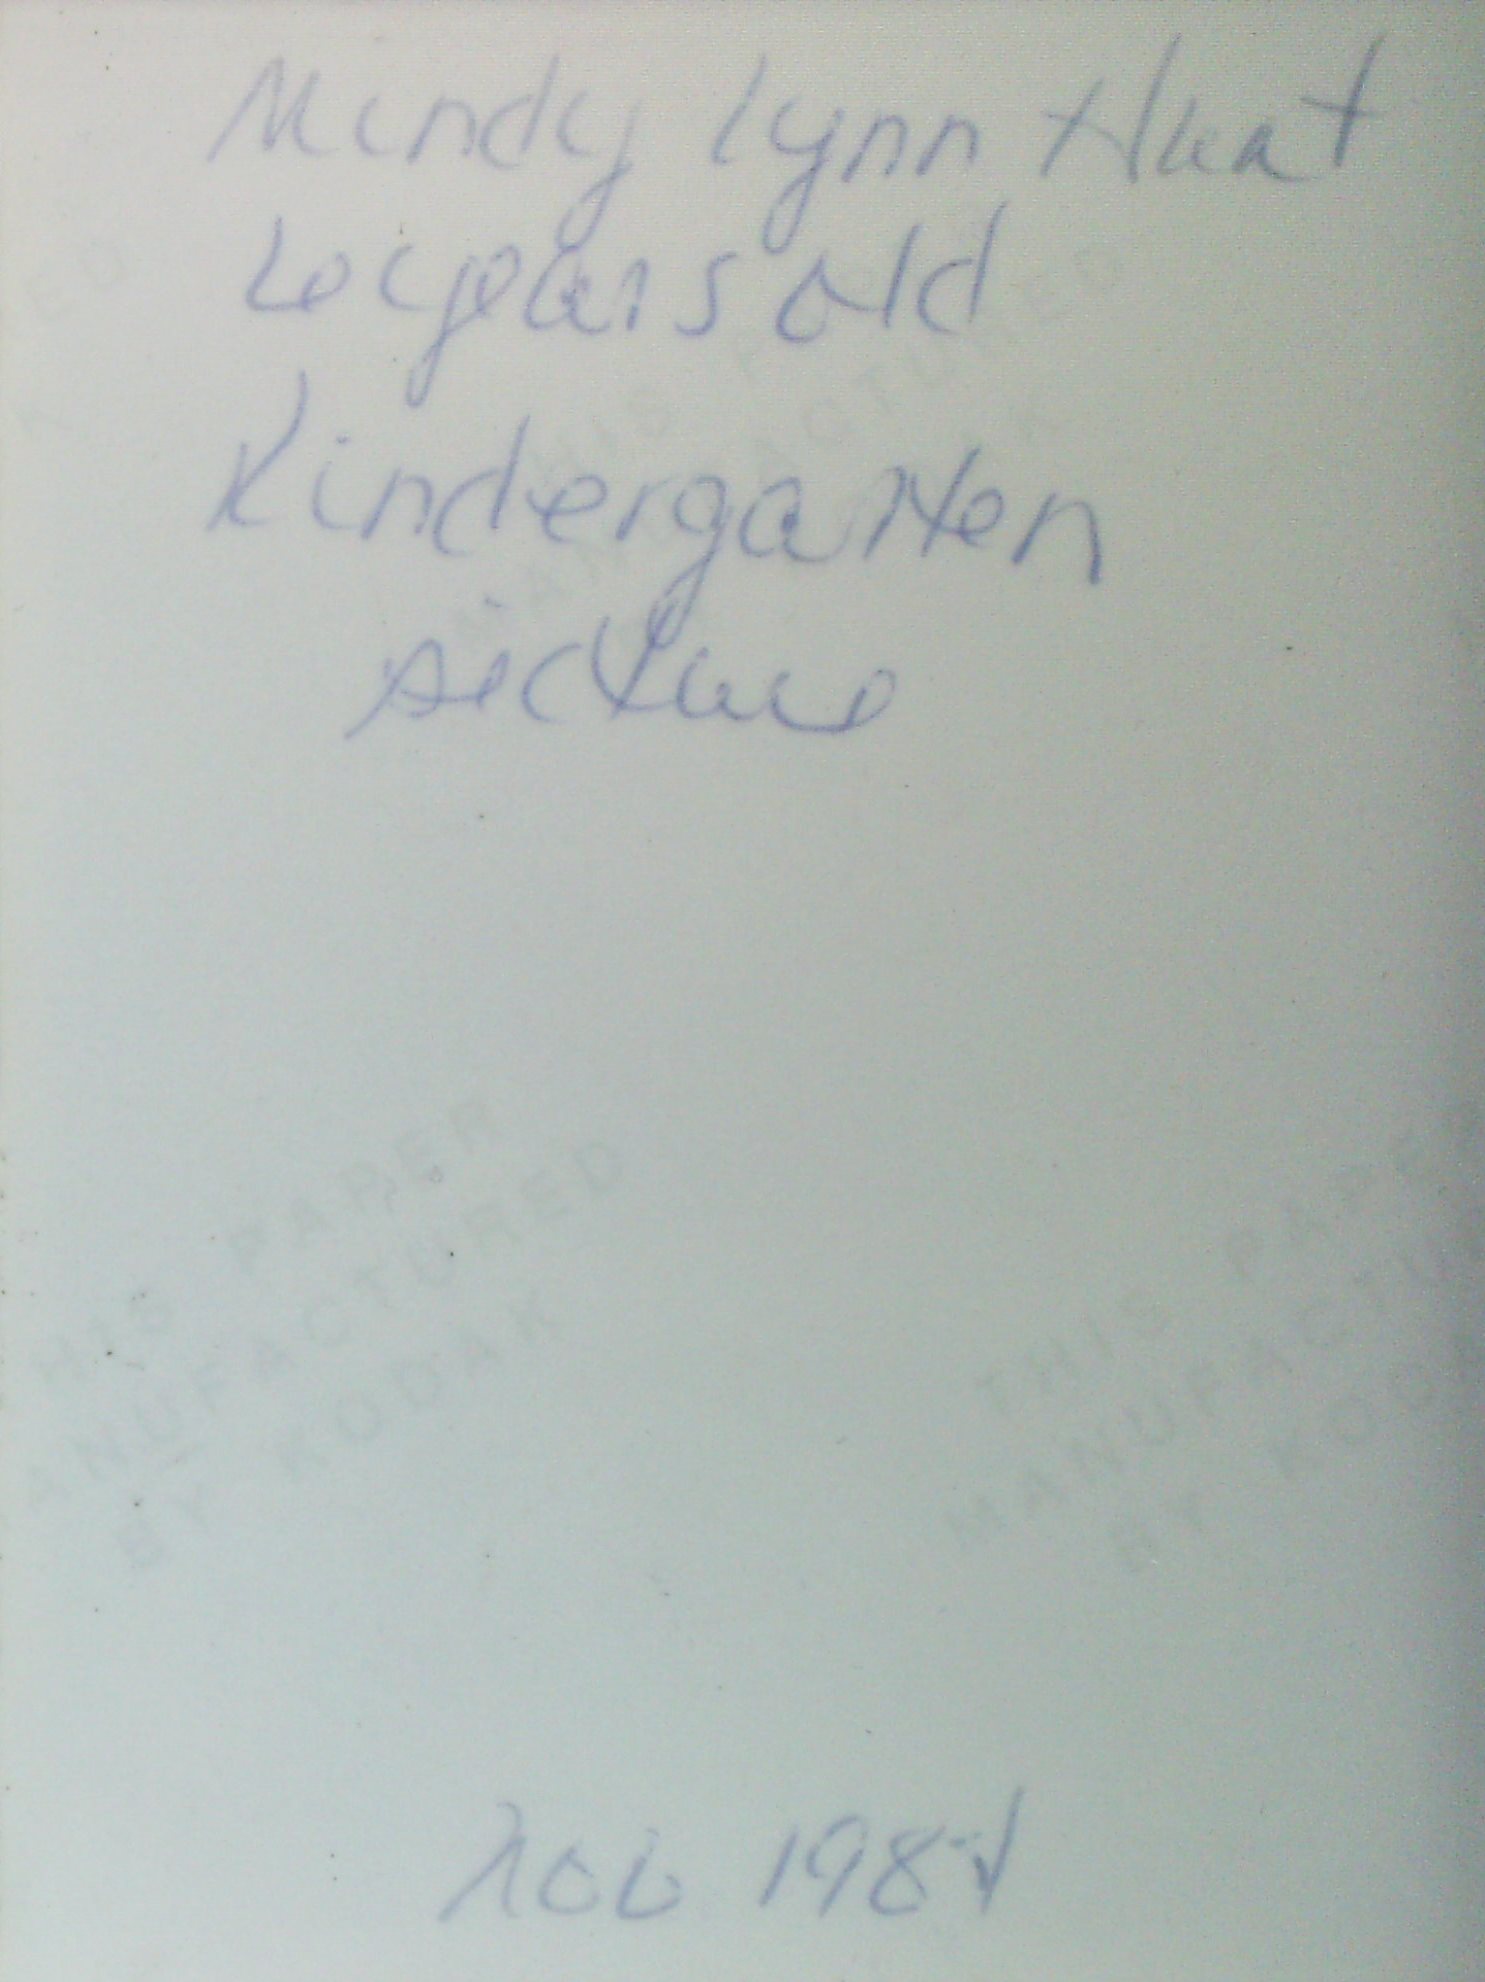 Mindy Lynn Hunt
6 years old
Kindergarten
picture
THIS PAPER
MANUFACTURED
BY KODAK
THIS PAPER
MANUFACTURED
BY KODAK
Nov